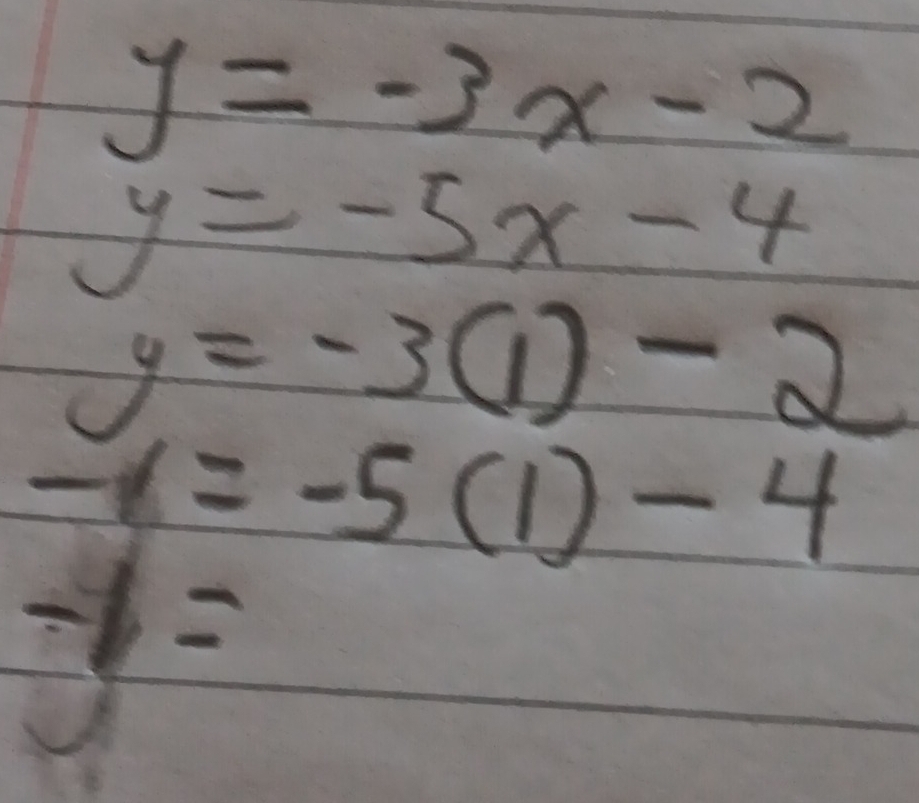 y = -3x - 2
y = -5x - 4
y = -3(1) - 2
-1 = -5(1) - 4
-1 =